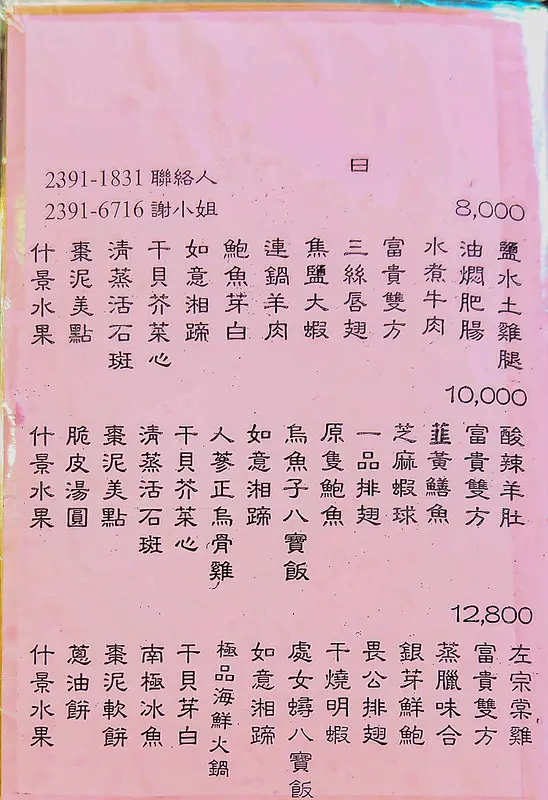 日
2391-1831 聯絡人
2391-6716 謝小姐
8,000
鹽水土雞腿
油燜肥腸
水煮牛肉
富貴雙方
三絲唇翅
焦鹽大蝦
連鍋羊肉
鮑魚芽白
如意湘蹄
干貝芥菜心
清蒸活石斑
棗泥美點
什景水果
10,000
酸辣羊肚
富貴雙方
韮黃鱔魚
芝麻蝦球
一品排翅
原隻鮑魚
烏魚子八寶飯
如意湘蹄
人蔘正烏骨雞
干貝芥菜心
清蒸活石斑
棗泥美點
脆皮湯圓
什景水果
12,800
左宗棠雞
富貴雙方
蒸臘味合
銀芽鮮鮑
畏公排翅
干燒明蝦
處女蟳八寶飯
如意湘蹄
極品海鮮火鍋
干貝芽白
南極冰魚
棗泥軟餅
蔥油餅
什景水果